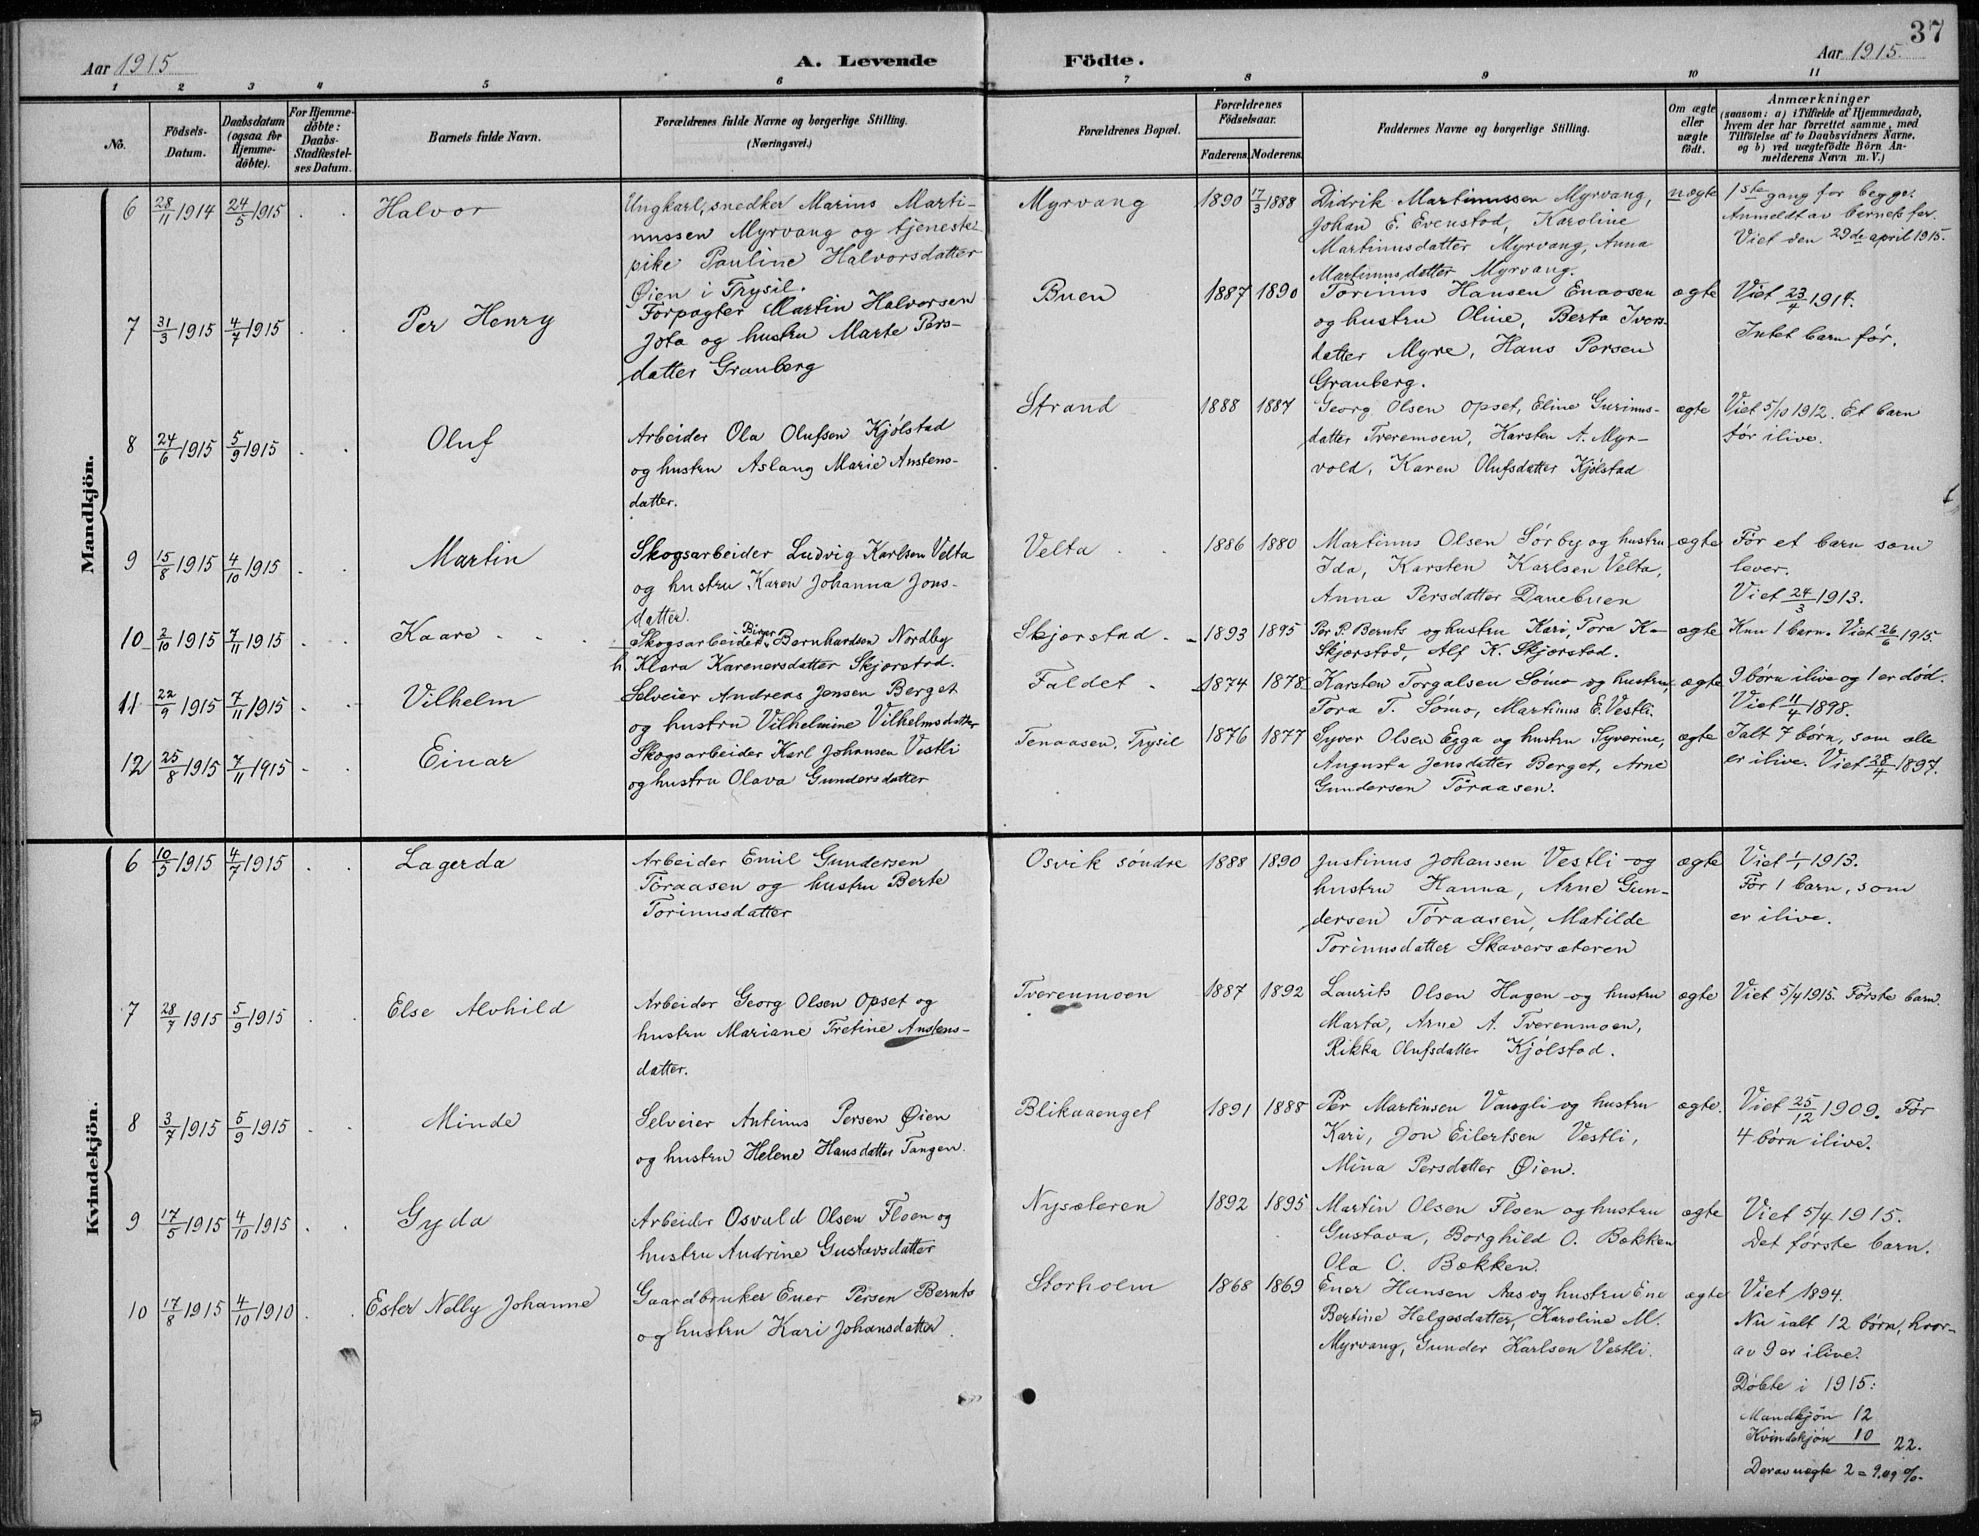 37
Aar 1915
A. Levende Födte.
Aar 1915.
1 2 3 4 5 6 7 8 9 10 11
No.
Födsels-Datum.
Daabsdatum (ogsaa for Hjemme-döbte).
For Hjemme-döbte: Daabs-Stadfæstel-ses Datum.
Barnets fulde Navn.
Forældrenes fulde Navne og borgerlige Stilling.
(Næringsvei.)
Forældrenes Bopæl.
Forældrenes Födselsaar.
Faderens. Moderens.
Faddernes Navne og borgerlige Stilling.
Om ægte eller uægte födt.
Anmærkninger
(saasom: a) i Tilfælde af Hjemmedaab, hvem der har forrettet samme, med Tilföielse af to Daabsvidners Navne, og b) ved uægtefödte Börn An-melderens Navn m. V.)
Mandkjön.
6 28/11 1914 24/5 1915 Halvor
Ungkarl, snedker Marius Marti-
nussen Myrvang og tjeneste
pike Pauline Halvorsdatter
Øien i Trysil.
Myrvang 1890 17/3 1888
Didrik Martinussen Myrvang,
Johan E. Evenstad, Karoline
Martinusdatter Myrvang, Anna
Martinusdatter Myrvang.
uægte
1ste gang for begge.
Anmeldt av barnets far.
Viet den 29de april 1915.
7 31/3 1915 4/7 1915 Per Henry
Forpagter Martin Halvorsen
Jota og hustru Marte Pers-
datter Granberg
Buen 1887 1890
Torinus Hansen Enaasen
og hustru Oline, Berta Ivers-
datter Myre, Hans Persen
Granberg.
ægte
Viet 23/4 1914.
Intet barn før.
8 24/6 1915 5/9 1915 Oluf
Arbeider Ola Olufsen Kjølstad
og hustru Aslaug Marie Anstens-
datter.
Strand 1888 1887
Georg Olsen Opset, Eline Gurinus-
datter Tveremoen, Karsten A. Myr-
vold, Karen Olufsdatter Kjølstad
ægte
Viet 5/10 1912. Et barn
før ilive.
9 15/8 1915 4/10 1915 Martin
Skogsarbeider Ludvig Karlsen Velta
og hustru Karen Johanna Jons-
datter.
Velta 1886 1880
Martinus Olsen Sørby og hustru
Ida, Karsten Karlsen Velta,
Anna Persdatter Danebuen
ægte
Før et barn som
lever.
Viet 24/3 1913.
10 2/10 1915 7/11 1915 Kaare
Skogsarbeider Birger Bernhardsen Nordby
h. Klara Karenersdatter Skjærstad.
Skjærstad 1893 1895
Per P. Bernts og hustru Kari, Tora K-
Skjærstad, Alf K. Skjærstad.
ægte
Kun 1 barn. Viet 26/6 1915.
11 22/9 1915 7/11 1915 Vilhelm
Selveier Andreas Jensen Berget
og hustru Vilhelmine Vilhelmsdatter
Faldet 1874 1878
Karsten Torgalsen Sømo og hustru,
Tora T. Sømo, Martinus E. Vestli.
ægte
9 børn ilive og 1 er død.
Viet 11/4 1898.
12 25/8 1915 7/11 1915 Einar
Skogsarbeider Karl Johansen Vestli
og hustru Olava Gundersdatter
Tenaasen, Trysil 1876 1877
Syver Olsen Egga og hustru Syverine,
Augusta Jensdatter Berget, Arne
Gundersen Tøraasen.
ægte
Ialt 7 børn, som alle
er ilive. Viet 28/4 1897.
Kvindekjön.
6 10/5 1915 4/7 1915 Lagerda
Arbeider Emil Gundersen
Tøraasen og hustru Berte
Torinusdatter
Osvik søndre 1888 1890
Justinus Johansen Vestli og
hustru Hanna, Arne Gun-
dersen Tøraasen, Matilde
Torinusdatter Skaversæteren
ægte
Viet 1/1 1913.
Før 1 barn, som
er ilive.
7 28/7 1915 5/9 1915 Else Alvhild
Arbeider Georg Olsen Opset og
hustru Mariane Tretine Anstens-
datter.
Tverenmoen 1887 1892
Laurits Olsen Hagen og hustru
Marta, Arne A. Tverenmoen,
Rikka Olufsdatter Kjølstad.
ægte
Viet 5/4 1915. Første barn.
8 3/7 1915 5/9 1915 Minde
Selveier Antinus Persen Øien
og hustru Helene Hansdatter Tangen.
Blikaaenget 1891 1888
Per Martinsen Vangli og hustru
Kari, Jon Eilertsen Vestli,
Mina Persdatter Øien.
ægte.
Viet 25/12 1909. Før
4 børn ilive.
9 17/5 1915 4/10 1915 Gyda
Arbeider Osvald Olsen Floen og
hustru Andrine Gustavsdatter
Nysæteren 1892 1895
Martin Olsen Floen og hustru
Gustava, Borghild O. Bækken
Ola O. Bækken.
ægte
Viet 5/4 1915.
Det første barn.
10 17/8 1915 4/10 1910 Ester Nelly Johanne
Gaardbruker Ener Persen Bernts
og hustru Kari Johansdatter.
Storholm 1868 1869
Ener Hansen Aas og hustru Ene
Bertine Helgesdatter, Karoline M.
Myrvang, Gunder Karlsen Vestli.
ægte
Viet 1894.
Nu ialt 12 børn, hvor-
av 9 er ilive.
Døbte i 1915:
Mandkjøn 12
Kvindekjøn 10 22.
Derav uægte 2 = 9,09 %.